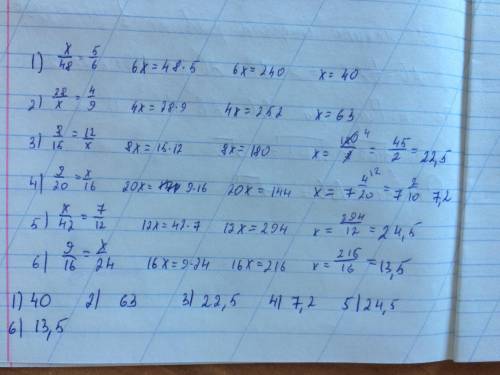 1) x/48 = 5/6   6x = 48·5   6x = 240   x = 40
2) 28/x = 4/9   4x = 28·9   4x = 252   x = 63
3) 8/15 = 12/x   8x = 15·12   8x = 180   x = = 45/2 = 22,5
4) 9/20 = x/16   20x = 9·16   20x = 144   x = 7 4/20 = 7 2/10 7,2
5) x/42 = 7/12   12x = 42·7   12x = 294   x = 294/12 = 24,5
6) 9/16 = x/24   16x = 9·24   16x = 216   x = 216/16 = 13,5
1) 40   2) 63   3) 22,5   4) 7,2   5) 24,5
6) 13,5